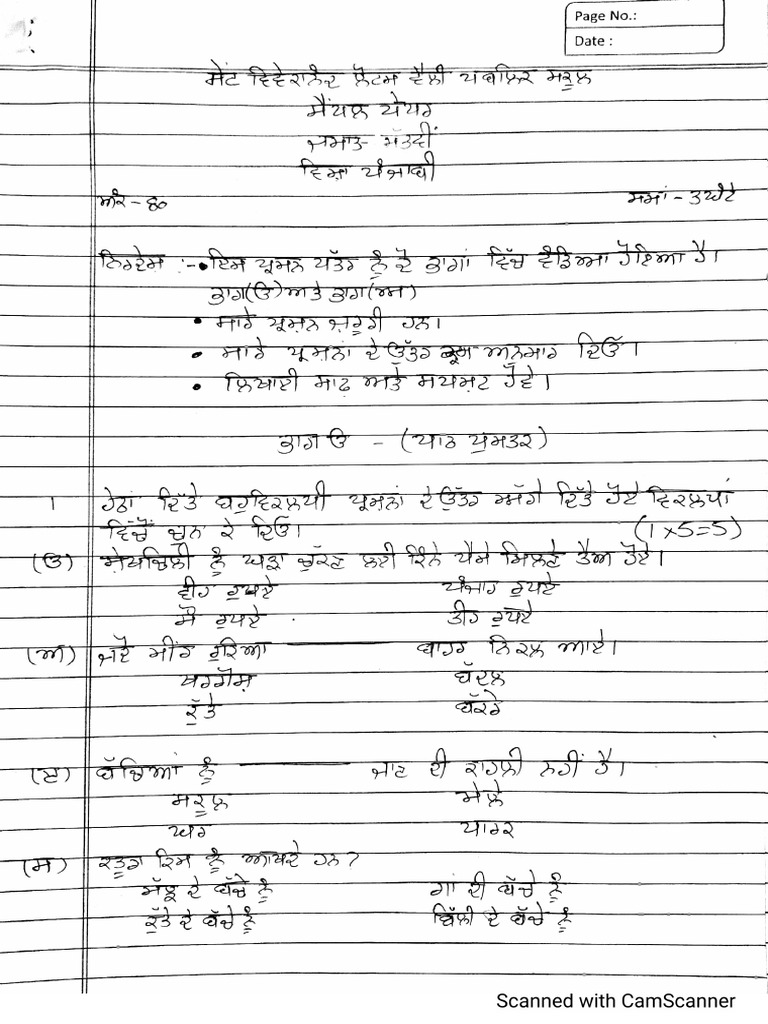 Page No.:
Date :
ਸੇਂਟ ਵਿਵੇਕਾਨੰਦ ਲੋਟਸ ਵੈਲੀ ਪਬਲਿਕ ਸਕੂਲ
ਸੈਂਪਲ ਪੇਪਰ
ਜਮਾਤ- ਸੱਤਵੀਂ
ਵਿਸ਼ਾ ਪੰਜਾਬੀ
ਅੰਕ - ੬੦ ਸਮਾਂ - ੩ ਘੰਟੇ
ਨਿਰਦੇਸ਼ :- • ਇਸ ਪ੍ਰਸ਼ਨ ਪੱਤਰ ਨੂੰ ਦੋ ਭਾਗਾਂ ਵਿੱਚ ਵੰਡਿਆ ਹੋਇਆ ਹੈ।
ਭਾਗ(ੳ) ਅਤੇ ਭਾਗ(ਅ)
• ਸਾਰੇ ਪ੍ਰਸ਼ਨ ਜ਼ਰੂਰੀ ਹਨ।
• ਸਾਰੇ ਪ੍ਰਸ਼ਨਾਂ ਦੇ ਉੱਤਰ ਅਨੁਸਾਰ ਦਿਓ।
• ਲਿਖਾਈ ਸਾਫ਼ ਅਤੇ ਸਪਸ਼ਟ ਹੋਵੇ।
ਭਾਗ ੳ - (ਪਾਠ ਪੁਸਤਕ)
1 ਹੇਠਾਂ ਦਿੱਤੇ ਬਹੁਵਿਕਲਪੀ ਪ੍ਰਸ਼ਨਾਂ ਦੇ ਉੱਤਰ ਅੱਗੇ ਦਿੱਤੇ ਹੋਏ ਵਿਕਲਪਾਂ
ਵਿੱਚੋਂ ਚੁਨ ਕੇ ਦਿਓ। (1×5=5)
(ੳ) ਸ਼ੇਖਚਿਲੀ ਨੂੰ ਘੜਾ ਚੁੱਕਣ ਲਈ ਕਿੰਨੇ ਪੈਸੇ ਮਿਲਣੇ ਤੈਅ ਹੋਏ।
ਵੀਹ ਰੁਪਏ ਪੰਜਾਹ ਰੁਪਏ
ਸੌ ਰੁਪਏ ਤੀਹ ਰੁਪਏ
(ਅ) ਜਦੋਂ ਮੀਂਹ ਰੁਕਿਆ ———— ਬਾਹਰ ਨਿਕਲ ਆਏ।
ਖਰਗੋਸ਼ ਬੱਦਲ
ਕੁੱਤੇ ਬੱਕਰੇ
(ੲ) ਬੱਚਿਆਂ ਨੂੰ ———— ਜਾਣ ਦੀ ਕਾਹਲੀ ਨਹੀਂ ਹੈ।
ਸਕੂਲ ਮੇਲੇ
ਘਰ ਪਾਰਕ
(ਸ) ਕਤੂਰਾ ਕਿਸ ਨੂੰ ਆਖਦੇ ਹਨ?
ਦੇ ਬੱਚੇ ਨੂੰ ਗਾਂ ਦੀ ਬੱਚੇ ਨੂੰ
ਕੁੱਤੇ ਦੇ ਬੱਚੇ ਨੂੰ ਬਿੱਲੀ ਦੇ ਬੱਚੇ ਨੂੰ
Scanned with CamScanner